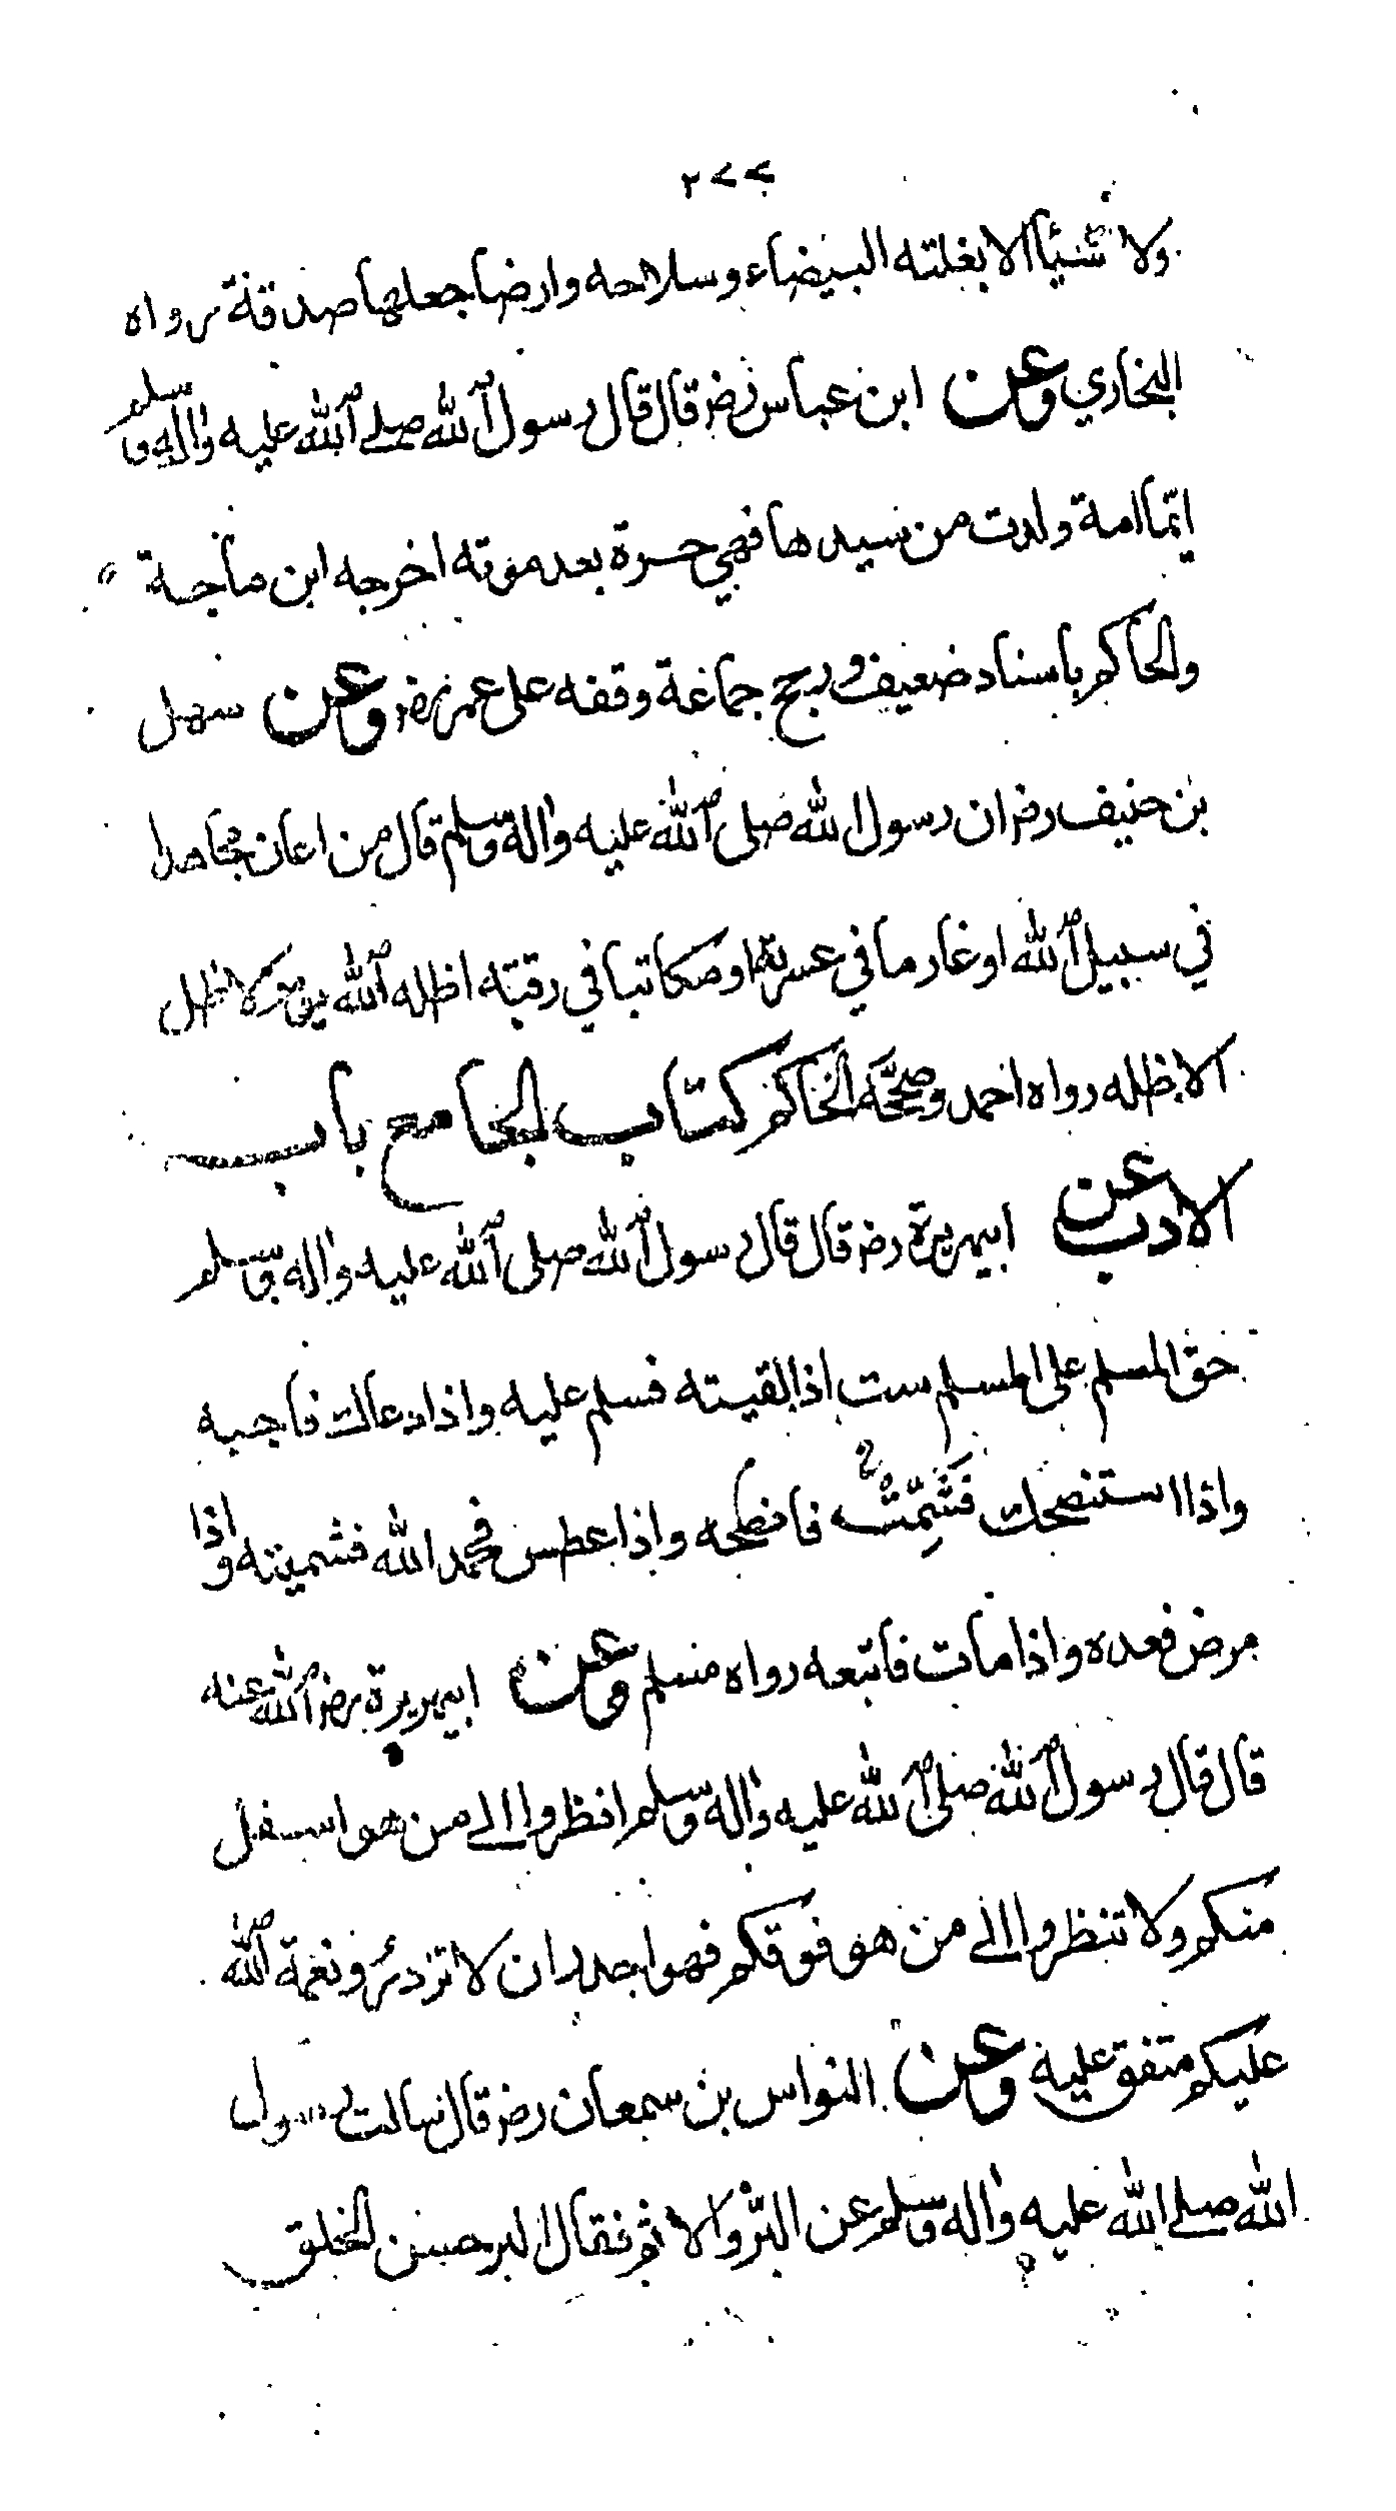 ٢٧٧
ولا شيئا الا بغلته البيضاء وسلاحه وارضا جعلها صدقة رواه
البخاري وعن ابن عباس رضر قال قال رسول الله صلے الله عليه واله وسلم
ايّما امة ولدت من سيدها فهي حرة بعد موته اخرجه ابن ماجة
والحاكم باسناد ضعيف ورجح جماعة وقفه على عمر رضر وعن سهل
بن حنيف رضر ان رسول الله صلى الله عليه واله وسلم قال من اعان مجاهدا
في سبيل الله او غارما في عسرته او مكاتبا في رقبته اظله الله يوم لا ظل
الا ظله رواه احمد وصححه الحاكم كتاب الجامع باب
الادب عن ابيهريرة رضر قال قال رسول الله صلى الله عليه واله وسلم
حق المسلم على المسلم ست اذا لقيته فسلم عليه واذا دعاك فاجبه
واذا استنصحك فَشَمِّتْهُ فانصحه واذا عطس فحمد الله فشميته واذا
مرض فعده واذا مات فاتبعه رواه مسلم وعن ابيهريرة رضر الله عنه
قال قال رسول الله صلى الله عليه واله وسلم انظروا الے من هو اسفل
منكم ولا تنظروا الى من هو فوقكم فهو اجدر ان لا تزدرؤ نعمة الله
عليكم متفق عليه وعن النواس بن سمعان رضر قال سالت رسول
الله صلے الله عليه واله وسلم عن البّر والاثم فقال البر حسن الخلق